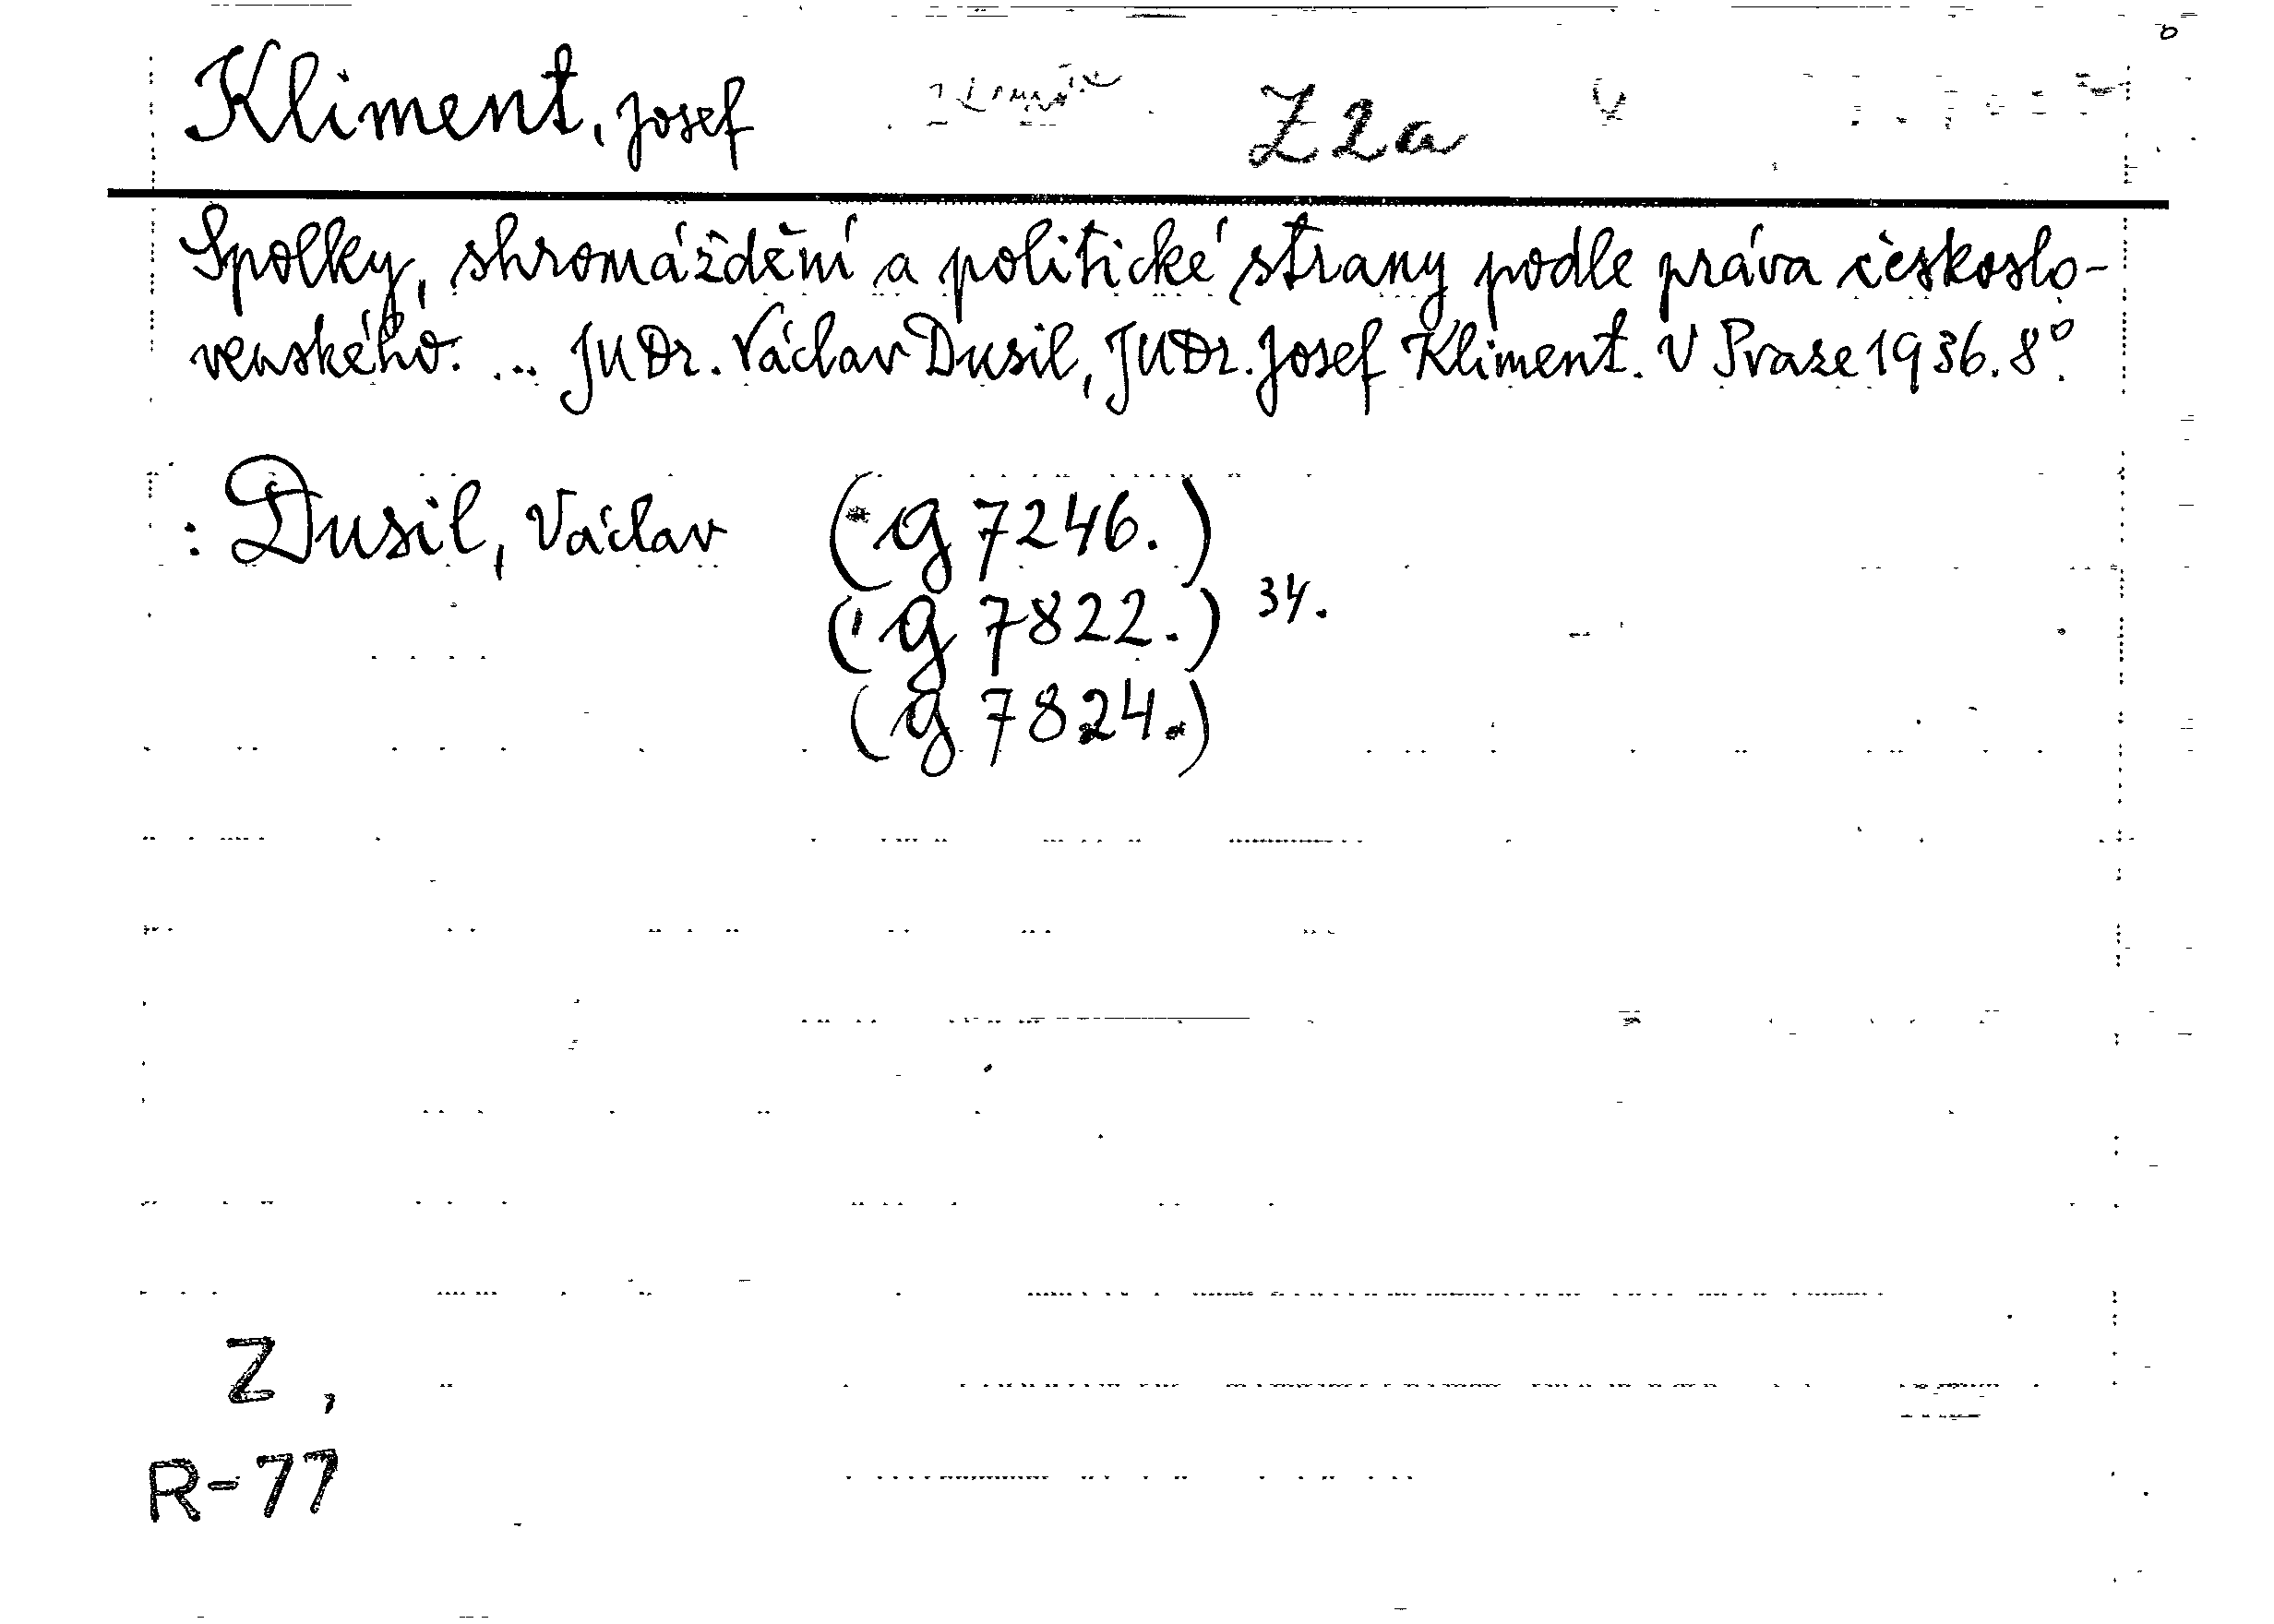 Kliment, Josef Z2a
Spolky, shromáždění a politické strany podle práva českoslo-
venského. ... JUDr. Václav Dusil, JUDr. Josef Kliment. V Praze 1936. 8°.
: Dusil, Václav (g 7246.)
(g 7822.) 34.
(g 7824.)
Z,
R-77